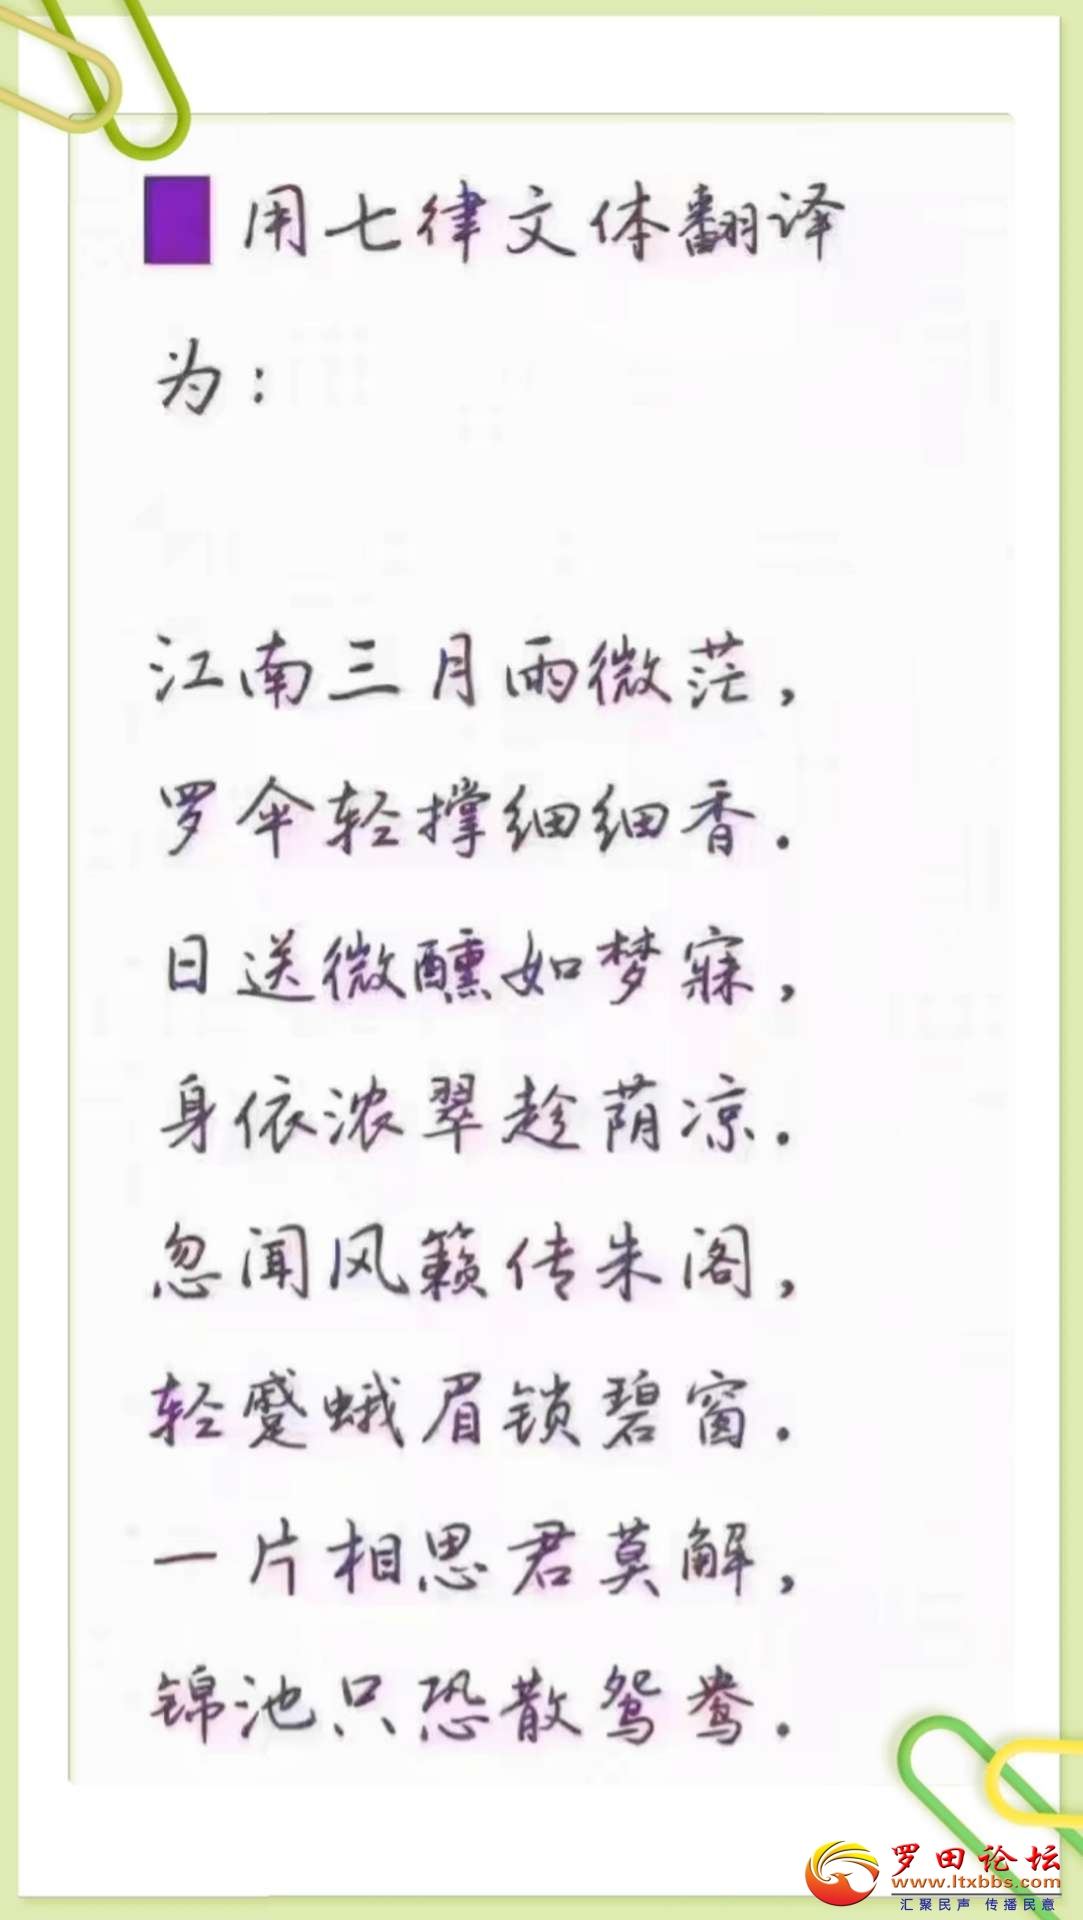 用七律文体翻译
为:
江南三月雨微茫,
罗伞轻撑细细香.
日送微醺如梦寐,
身依浓翠趁荫凉.
忽闻风籁传朱阁,
轻蹙蛾眉锁碧窗.
一片相思君莫解,
锦池只恐散鸳鸯.
罗田论坛
www.ltxbbs.com
汇聚民声 传播民意